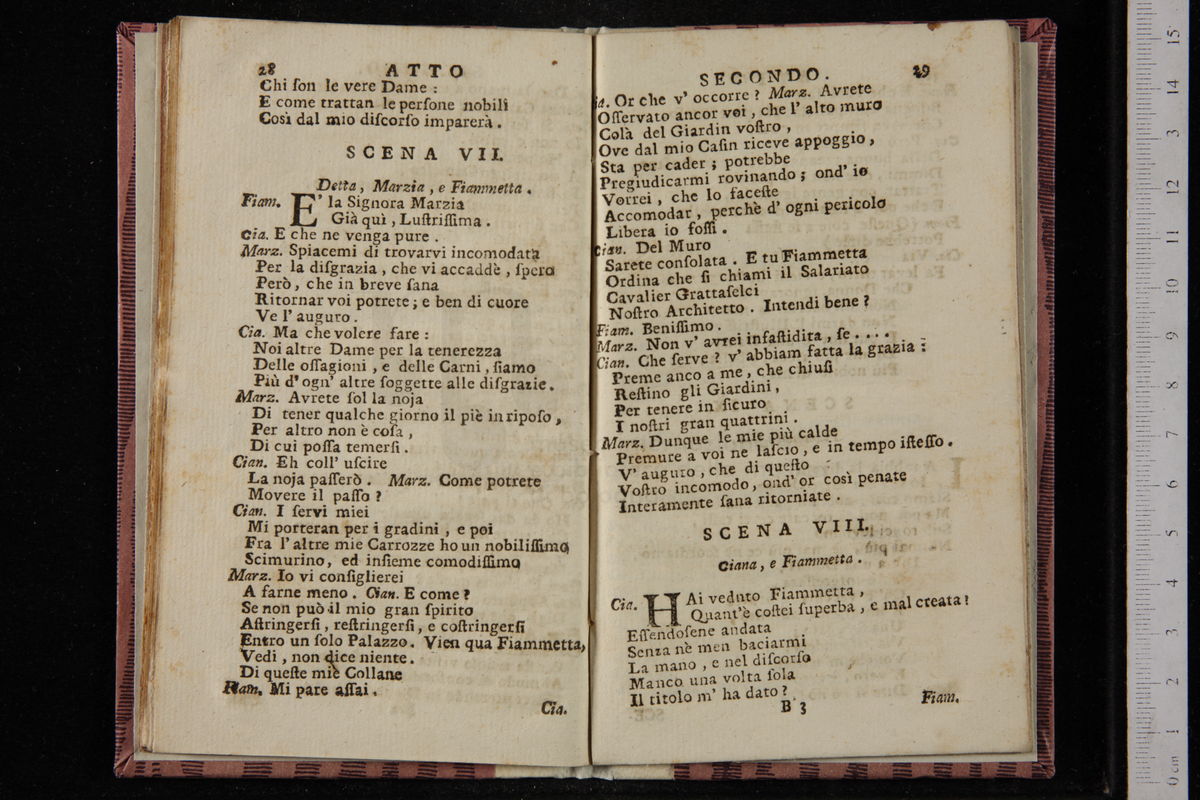 28 ATTO
Chi ſon le vere Dame :
E come trattan le perſone nobili
Così dal mio diſcorſo imparerà .
SCENA VII.
Detta, Marzia , e Fiammetta .
Fiam. E' la Signora Marzia
Già quì , Luſtriſſima .
Cia. E che ne venga pure .
Marz. Spiacemi di trovarvi incomodata
Per la diſgrazia , che vi accaddè , ſpero
Però , che in breve ſana
Ritornar voi potrete ; e ben di cuore
Ve l' auguro .
Cia. Ma che volere fare :
Noi altre Dame per la tenerezza
Delle oſſagioni , e delle Carni , ſiamo
Più d' ogn' altre ſoggette alle diſgrazie.
Marz. Avrete ſol la noja
Di tener qualche giorno il piè in ripoſo ,
Per altro non è coſa ,
Di cui poſſa temerſi .
Cian. Eh coll' uſcire
La noja paſſerò . Marz. Come potrete
Movere il paſſo ?
Cian. I ſervi miei
Mi porteran per i gradini , e poi
Fra l' altre mie Carrozze ho un nobiliſſimo
Scimurino, ed inſieme comodiſſimo
Marz. Io vi conſiglierei
A farne meno . Cian. E come ?
Se non può il mio gran ſpirito
Aſtringerſi , reſtringerſi, e coſtringerſi
Entro un ſolo Palazzo. Vien qua Fiammetta,
Vedi , non dice niente .
Di queſte miè Collane
Fiam. Mi pare aſſai .
Cia.
SECONDO. 29
ia. Or che v' occorre ? Marz. Avrete
Oſſervato ancor voi , che l' alto muro
Colà del Giardin voſtro ,
Ove dal mio Caſin riceve appoggio ,
Sta per cader ; potrebbe
Pregiudicarmi rovinando ; ond' io
Vorrei , che lo faceſte
Accomodar , perchè d' ogni pericolo
Libera io foſſi .
Cian. Del Muro
Sarete conſolata . E tu Fiammetta
Ordina che ſi chiami il Salariato
Cavalier Grattaſelci
Noſtro Architetto . Intendi bene ?
Fiam. Beniſſimo .
Marz. Non v' avrei infaſtidita , ſe . . . .
Cian. Che ſerve ? v' abbiam fatta la grazia :
Preme anco a me , che chiuſi
Reſtino gli Giardini ,
Per tenere in ſicuro
I noſtri gran quattrini .
Marz. Dunque le mie più calde
Premure a voi ne laſcio , e in tempo iſteſſo .
V' auguro , che di queſto
Voſtro incomodo , ond' or così penate
Interamente ſana ritorniate .
SCENA VIII.
Ciana, e Fiammetta .
Cia. HAi veduto Fiammetta ,
Quant'è coſtei ſuperba , e mal creata ?
Eſſendoſene andata
Senza nè men baciarmi
La mano , e nel diſcorſo
Manco una volta ſola
Il titolo m' ha dato ?
B 3 Fiam.
0 cm 1 2 3 4 5 6 7 8 9 10 11 12 13 14 15